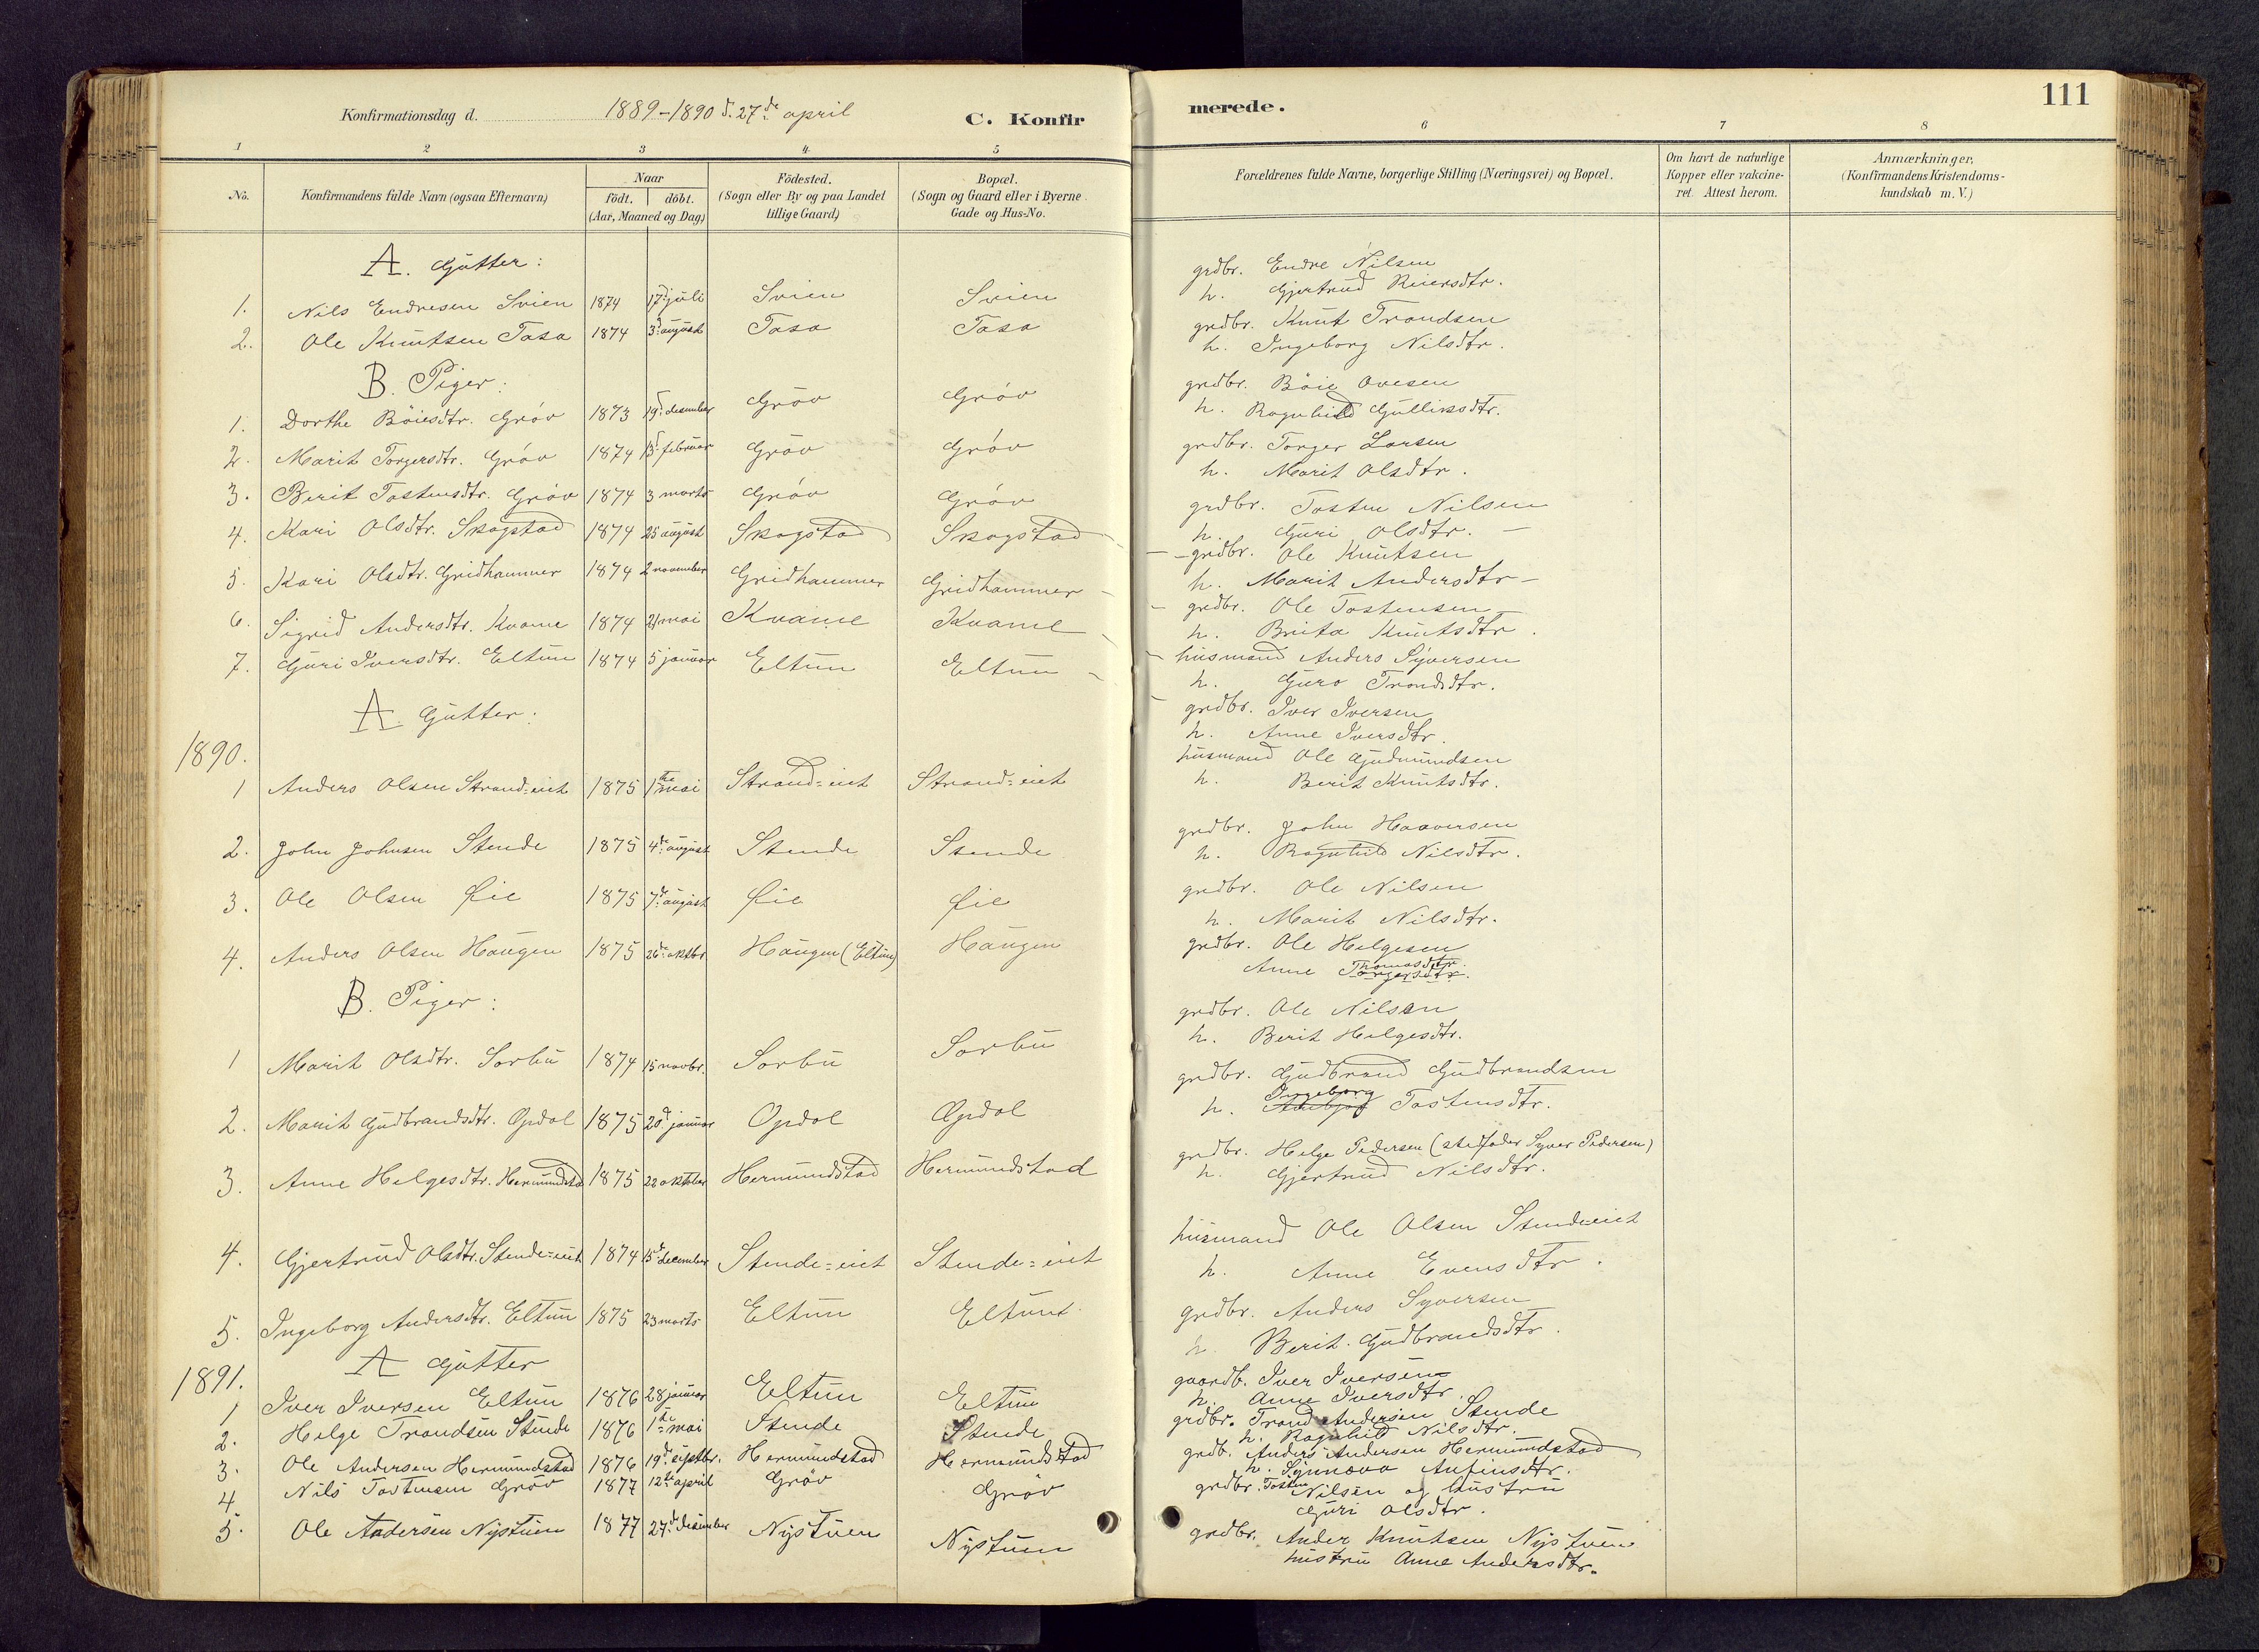 Konfirmationsdag d. 1889-1890 d. 27de april
C. Konfir
merede.
111
1 2 3 4 5 6 7 8
No.
Konfirmandens fulde Navn (ogsaa Efternavn)
Naar
födt. döbt.
(Aar, Maaned og Dag)
Födested.
(Sogn eller By og paa Landet
tillige Gaard)
Bopæl.
(Sogn og Gaard eller i Byerne
Gade og Hus-No.
Forældrenes fulde Navne, borgerlige Stilling (Næringsvei) og Bopæl.
Om havt de naturlige
Kopper eller vakcine-
ret. Attest herom.
Anmærkninger,
(Konfirmandens Kristendoms-
kundskab m. V.)
A. Gutter:
1. Nils Endresen Svien 1874 17d juli Svien Svien
grdbr. Endre Nilsen
h. Gjertrud Reiersdtr.
2. Ole Knutsen Tasa 1874 3d august Tasa Tasa
grdbr. Knut Trondsen
h. Ingeborg Nilsdtr.
B. Piger:
1. Dorthe Böiesdtr. Gröv 1873 19d desember Gröv Gröv
grdbr. Böie Ovesen
h. Ragnhild Gulliksdtr.
2. Marit Torgersdtr. Gröv 1874 13d februar Gröv Gröv
grdbr. Torger Larsen
h. Marit Olsdtr.
3. Berit Tostensdtr. Gröv 1874 3 marts Gröv Gröv
grdbr. Tosten Nilsen
h. Guri Olsdtr. -
4. Kari Olsdtr. Skogstad 1874 25 august Skogstad Skogstad -
- grdbr. Ole Knutsen
h. Marit Andersdtr -
5. Kari Olsdtr. Gridhammer 1874 2 november Gridhammer Gridhammer -
- grdbr. Ole Tostensen
h. Brita Knutsdtr.
6. Sigrid Andersdtr. Kvame 1874 21 mai Kvame Kvame -
- husmand Anders Syversen
h. Guro Trondsdtr.
7. Guri Iversdtr. Eltun 1874 5 januar Eltun Eltun -
- grdbr. Iver Iversen
h. Anne Iversdtr.
A. Gutter:
1890.
1 Anders Olsen Strand=eiet 1875 1te mai Strand=eiet Strand=eiet
husmand Ole Gudmundsen
h. Berit Knutsdtr.
2. John Johnsen Stende 1875 4de august Stende Stende
grdbr. John Haaversen
h. Ragnhild Nilsdtr.
3. Ole Olsen Øie 1875 7de august Øie Øie
grdbr. Ole Nilsen
h. Marit Nilsdtr.
4. Anders Olsen Haugen 1875 26de oktbr. Haugen (Eltun) Haugen
grdbr. Ole Helgesen
Thomasdtr.
Anne Torgersdtr.
B. Piger:
1 Marit Olsdtr. Sorbu 1874 15 novbr. Sorbu Sorbu
grdbr. Ole Nilsen
h. Berit Helgesdtr.
2. Marit Gudbrandsdtr. Opdal 1875 20d januar Opdal Opdal
grdbr. Gudbrand Gudbrandsen
Ingeborg
h. Tostensdtr.
3. Anne Helgesdtr. Hermundstad 1875 22 oktober Hermundstad Hermundstad
grdbr. Helge Pedersen (stedfader Syver Pedersen)
h. Gjertrud Nilsdtr.
4. Gjertrud Olsdtr. Stende=eiet 1874 15d december Stende=eiet Stende=eiet
husmand Ole Olsen Stende=eiet
h. Anne Evensdtr.
5. Ingeborg Andersdtr. Eltun 1875 23 marts Eltun Eltun
grdbr. Anders Syversen
h. Berit Gudbrandsdtr.
A Gutter
1891.
1 Iver Iversen Eltun 1876 28 januar Eltun Eltun
gaardb. Iver Iversen
h. Anne Iversdtr.
2. Helge Trondsen Stende 1876 1te mai Stende Stende
grdbr. Trond Andersen Stende
h. Ragnhild Nilsdtr.
3. Ole Andersen Hermundstad 1876 19d septbr. Hermundstad Hermundstad
grdb. Anders Andersen Hermundstad
h. Synnøva Anfinsdtr.
4 Nils Tostensen Gröv 1877 12te april Gröv Gröv
grdbr. Tosten Nilsen og hustru
Guri Olsdtr.
5. Ole Andersen Nystuen 1877 27de desember Nystuen Nystuen
grdbr. Ander Knutsen Nystuen
hustru Anne Andersdtr.